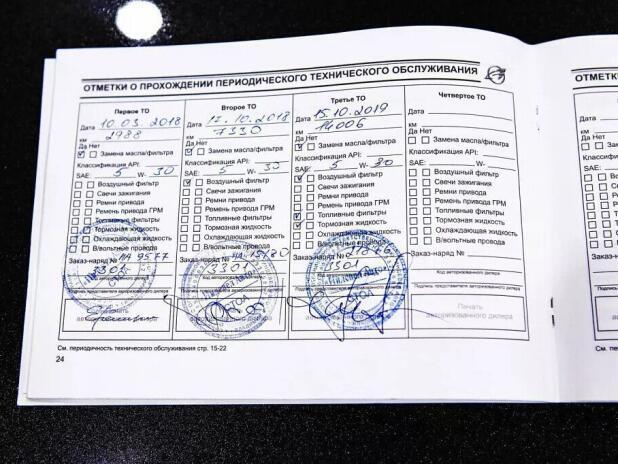 ОТМЕТКИ О ПРОХОЖДЕНИИ ПЕРИОДИЧЕСКОГО ТЕХНИЧЕСКОГО ОБСЛУЖИВАНИЯ
Первое ТО
Дата 10.03.2018
км 2988
Да Нет
Замена масла/фильтра
Классификация API:
SAE: 5 W- 30
Воздушный фильтр
Свечи зажигания
Ремни привода
Ремень привода ГРМ
Топливные фильтры
Тормозная жидкость
Охлаждающая жидкость
В/вольтные провода
Заказ-наряд № НА 9577
3301
Второе ТО
Дата 17.10.2018
км 7330
Да Нет
Замена масла/фильтра
Классификация API:
SAE: 5 W- 30
Воздушный фильтр
Свечи зажигания
Ремни привода
Ремень привода ГРМ
Топливные фильтры
Тормозная жидкость
Охлаждающая жидкость
В/вольтные провода
Заказ-наряд №
3301
Третье ТО
Дата 15.10.2019
км 14006
Да Нет
Замена масла/фильтра
Классификация API:
SAE: 5 W- 30
Воздушный фильтр
Свечи зажигания
Ремни привода
Ремень привода ГРМ
Топливные фильтры
Тормозная жидкость
Охлаждающая жидкость
В/вольтные провода
Заказ-наряд №
3301
Четвертое ТО
Дата
км
Да Нет
Замена масла/фильтра
Классификация API:
SAE: W-
Воздушный фильтр
Свечи зажигания
Ремни привода
Ремень привода ГРМ
Топливные фильтры
Тормозная жидкость
Охлаждающая жидкость
В/вольтные провода
Заказ-наряд №
Код авторизованного дилера
Подпись представителя авторизованного дилера
Печать
авторизованного дилера
См. периодичность технического обслуживания стр. 15-22
24
ОТМЕТКИ
Дата
км
Да Нет
SAE:
См. пе
25